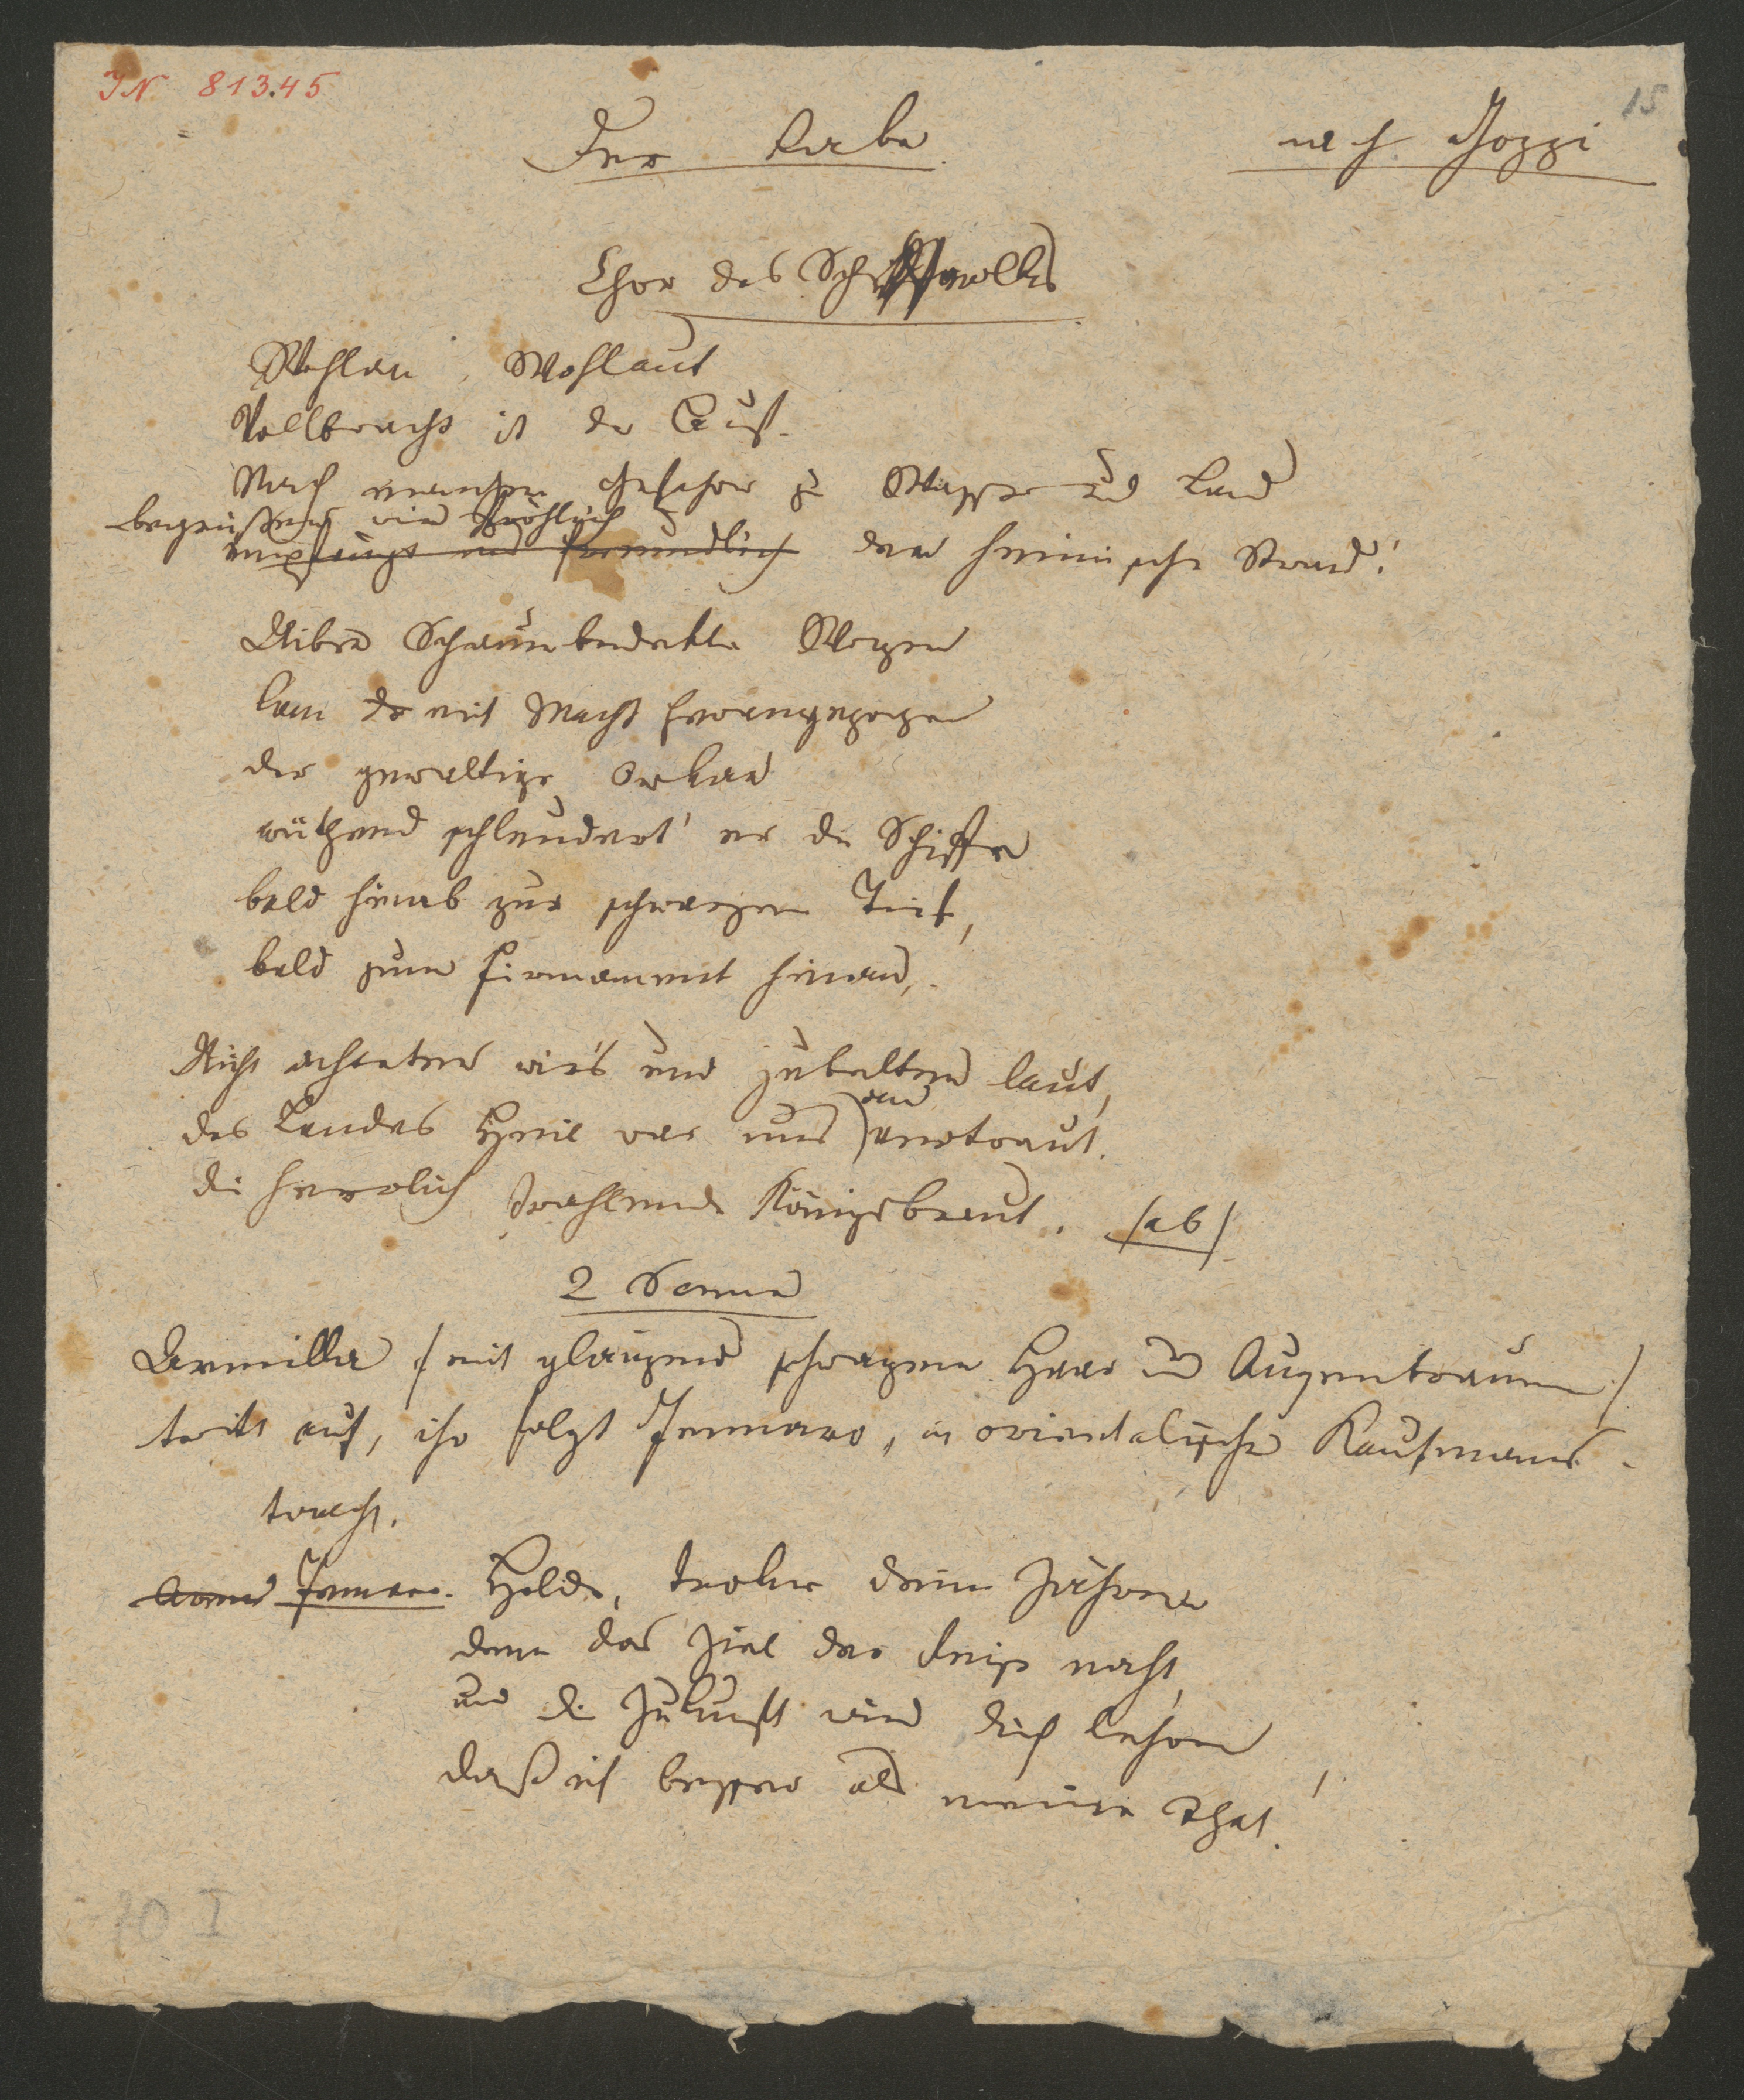 IN 813.45
15
Der Rabe
nach Gozzi
Chor des Schiffsvolkes
Wohlan, Wohlauf
Vollbracht ist der Lauf.
Nach mancher Gefahr zu Wasser und Land
begrüßen wir fröhlich
empfängt uns freundlich den heimische Strand!
Ueber Schaumbedekte Wogen
kam da mit Macht herangezogen
der gewaltige Orkan
wüthend schleudert' er die Schiffe
bald hinab zur schwarzen Tiefe,
bald zum Firmament hinan,.
Nicht achteten wir's und jubelten laut,
an
des Landes Heil war uns vertraut.
die herrlich strahlende Königsbraut. /ab/
2 Scene
Armilla /mit glänzend schwarzem Haar und Augenbraunen/
tritt auf, ihr folgt Jennaro, in orientalischer Kaufmanns-
tracht.
Arm Jennaro. Holde, trokne deine Zähren
denn das Ziel der Reise naht,
und die Zukunft wird dich lehren,
daß ich besser als meine That!
70 I